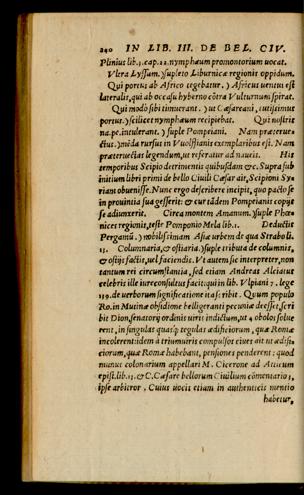 240 IN LIB. III. DE BEL. CIV.
Plinius lib. 3. cap. 22. nymphæum promontorium uocat.
Vltra Lyssum. ) supleto Liburnicæ regionis oppidum.
Qui portus ab Africo tegebatur. ) Africus uentus est
lateralis, qui ab occasu hyberno cōtra Vulturnum spirat.
Qui modò sibi timuerant. ) ut Cæsareani, tutissimus
portus. ) scilicet nymphæum recipiebat. Qui nostris
na. pe. intulerant. ) suple Pompeiani. Nam præteruectus.
ctus. ) mida rursus in Vuolffianis exemplaribus est. Nam
præteruectas legendum, ut referatur ad naueis. His
temporibus Scipio detrimentis quibusdam &c. Supra sub
initium libri primi de bello Ciuili Cæsar ait, Scipioni Syriam
riam obuenisse. Nunc ergo describere incipit, quo pacto se
in prouintia sua gesserit: & cur tādem Pompeianis copijs
se adiunxerit. Circa montem Amanum. ) suple Phœ
nices regionis, teste Pomponio Mela lib. 1. Deductis
Pergamū. ) nobilissimam Asiæ urbem de qua Strabo li.
13. Columnaria, & ostiaria. ) suple tributa de columnis,
& ostijs factis, uel faciendis. Vt autem sic interpreter, non
tantum rei circumstantia, sed etiam Andreas Alciatus
celebris ille iureconsultus facit: qui in lib. Vlpiani 7. lege
139. de uerborum significatione ita scribit. Quum populo
Ro. in Mutinæ obsidione belligeranti pecuniæ deesset, scri
bit Dion, senatorij ordinis uiris indictum, ut 4. obolos solue
rent, in singulas quasq; tegulas ædificiorum, quæ Romæ
incolerent: idem à triumuiris compulsos ciues ait ut ædifi-
ciorum, quæ Romæ habebant, pensiones penderent: quod
munus colonarium appellari M. Cicerone ad Atticum
epist. lib. 13. & C. Cæsare bellorum Ciuilium cōmentario 3.
ipse arbitror. Cuius uocis etiam in authenticis mentio
habetur,